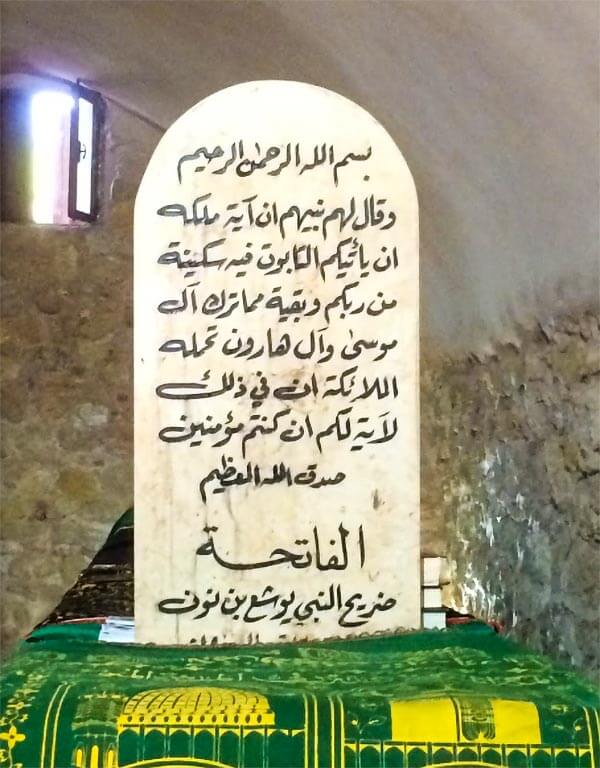 بسم الله الرحمن الرحيم
وقال لهم نبيهم ان آية ملكه
ان يأتيكم التابوت فيه سكينة
من ربكم وبقية مما ترك آل
موسى وآل هارون تحمله
الملائكة ان في ذلك
لآية لكم ان كنتم مؤمنين
صدق الله العظيم
الفاتحة
ضريح النبي يوشع بن نون